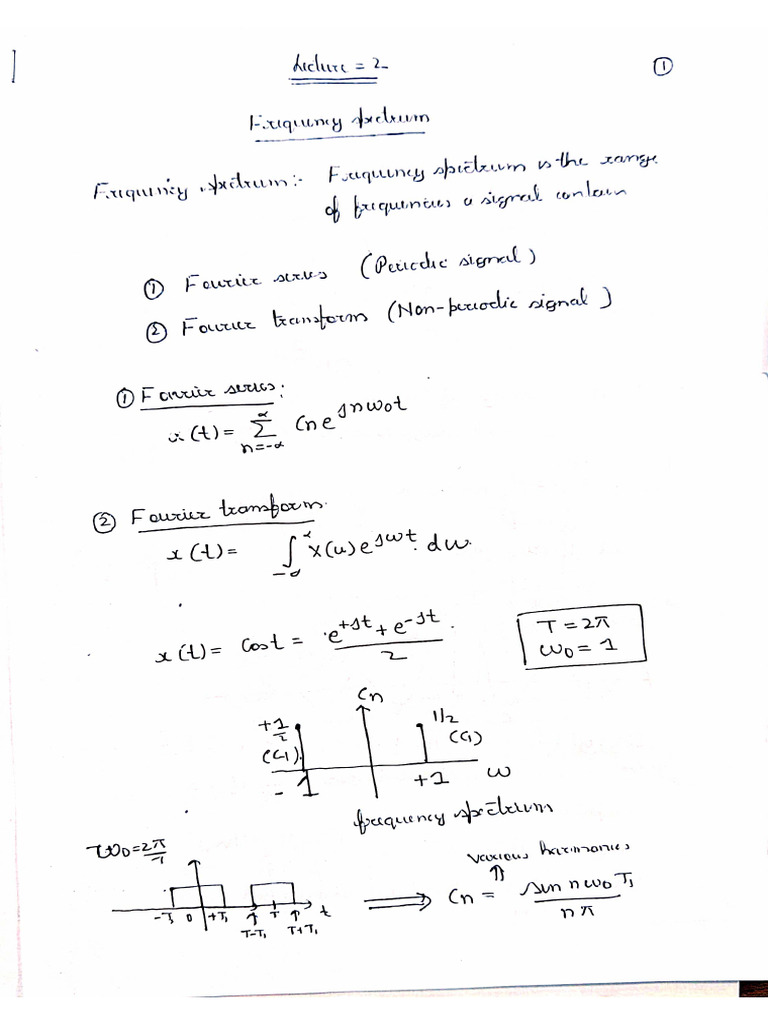 Lecture = 2
①
Frequency spectrum
Frequency spectrum :- Frequency spectrum is the range
of frequencies a signal contain
① Fourier series (Periodic signal)
② Fourier transform (Non-periodic signal)
① Fourier series:
x(t) = ∑_{n=-∞}^{∞} Cn e^{jnω0t}
② Fourier transform.
x(t) = ∫_{-∞}^{∞} X(ω) e^{jωt} dω.
x(t) = Cost = (e^{+jt} + e^{-jt})/2
T = 2π
ω0 = 1
Cn
+1/2
(C-1)
1/2
(C1)
-1 +1 ω
frequency spectrum
ω0 = 2π/T
various harmonics
⇑
-T1 0 +T1 T t
T-T1 T+T1
⟹ Cn = sin nω0T1/nπ